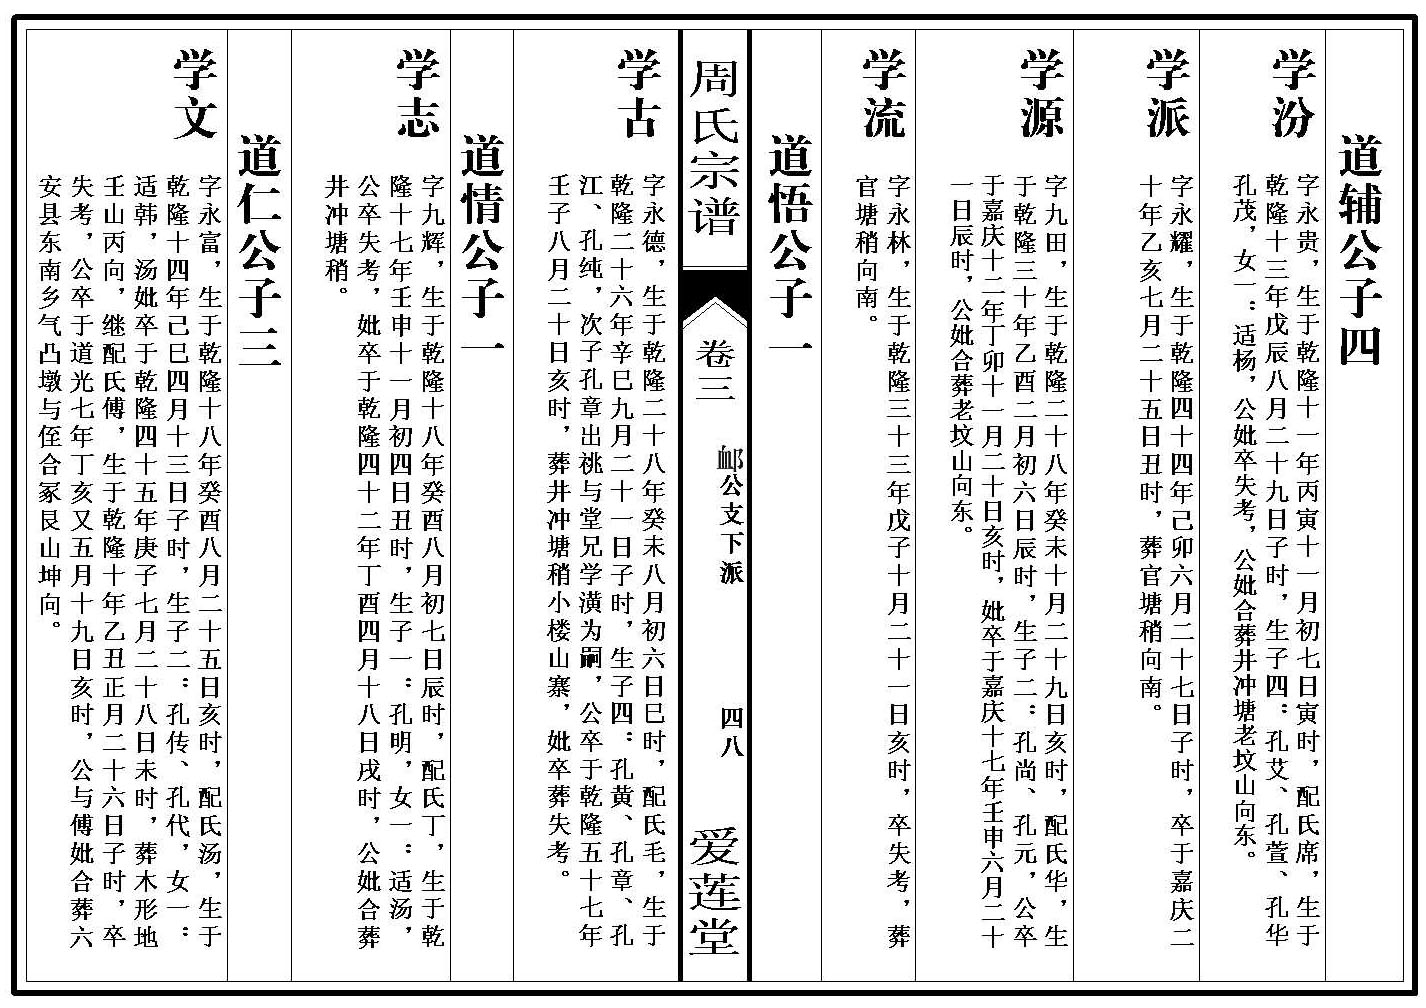 道辅公子四
学汾
字永贵，生于乾隆十一年丙寅十一月初七日寅时，配氏席，生于
乾隆十三年戊辰八月二十九日子时，生子四：孔艾、孔萱、孔华
孔茂，女一：适杨，公妣卒失考，公妣合葬井冲塘老坟山向东。
学派
字永耀，生于乾隆四十四年己卯六月二十七日子时，卒于嘉庆二
十年乙亥七月二十五日丑时，葬官塘稍向南。
学源
字九田，生于乾隆二十八年癸未十月二十九日亥时，配氏华，生
于乾隆三十年乙酉二月初六日辰时，生子二：孔尚、孔元，公卒
于嘉庆十二年丁卯十一月二十日亥时，妣卒于嘉庆十七年壬申六月二十
一日辰时，公妣合葬老坟山向东。
学流
字永林，生于乾隆三十三年戊子十月二十一日亥时，卒失考，葬
官塘稍向南。
道悟公子一
周氏宗谱
卷三
邮公支下派
四八
爱莲堂
学古
字永德，生于乾隆二十八年癸未八月初六日巳时，配氏毛，生于
乾隆二十六年辛巳九月二十一日子时，生子四：孔黄、孔章、孔
江、孔纯，次子孔章出祧与堂兄学潢为嗣，公卒于乾隆五十七年
壬子八月二十日亥时，葬井冲塘稍小楼山寨，妣卒葬失考。
道情公子一
学志
字九辉，生于乾隆十八年癸酉八月初七日辰时，配氏丁，生于乾
隆十七年壬申十一月初四日丑时，生子一：孔明，女一：适汤，
公卒失考，妣卒于乾隆四十二年丁酉四月十八日戌时，公妣合葬
井冲塘稍。
道仁公子三
学文
字永富，生于乾隆十八年癸酉八月二十五日亥时，配氏汤，生于
乾隆十四年己巳四月十三日子时，生子二：孔传、孔代，女一：
适韩，汤妣卒于乾隆四十五年庚子七月二十八日未时，葬木形地
壬山丙向，继配氏傅，生于乾隆十年乙丑正月二十六日子时，卒
失考，公卒于道光七年丁亥又五月十九日亥时，公与傅妣合葬六
安县东南乡气凸墩与侄合冢艮山坤向。